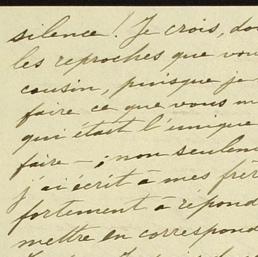 silence! Je crois, do
les reproches que vou
cousin, puisque je
faire ce que vous m
qui était l'unique
faire – ; non seulem
j'ai écrit à mes frèr
fortement à répond
mettre en correspond